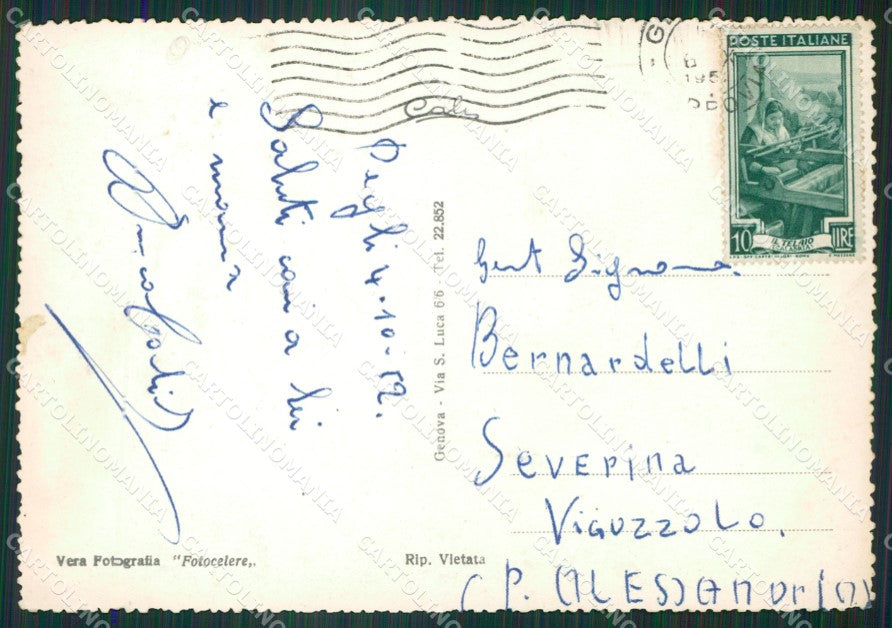 Pegli 4-10-52.
Saluti cari a lei
e mamma
Genova - Via S. Luca 6/6 - Tel. 22.852
Vera Fotografia "Fotocelere,,
Rip. Vietata
POSTE ITALIANE
10 LIRE
IL TELAIO
Gent Signora
Bernardelli
Severina
Viguzzolo.
(P. ALESSANDRIA)
CARTOLINOMANIA